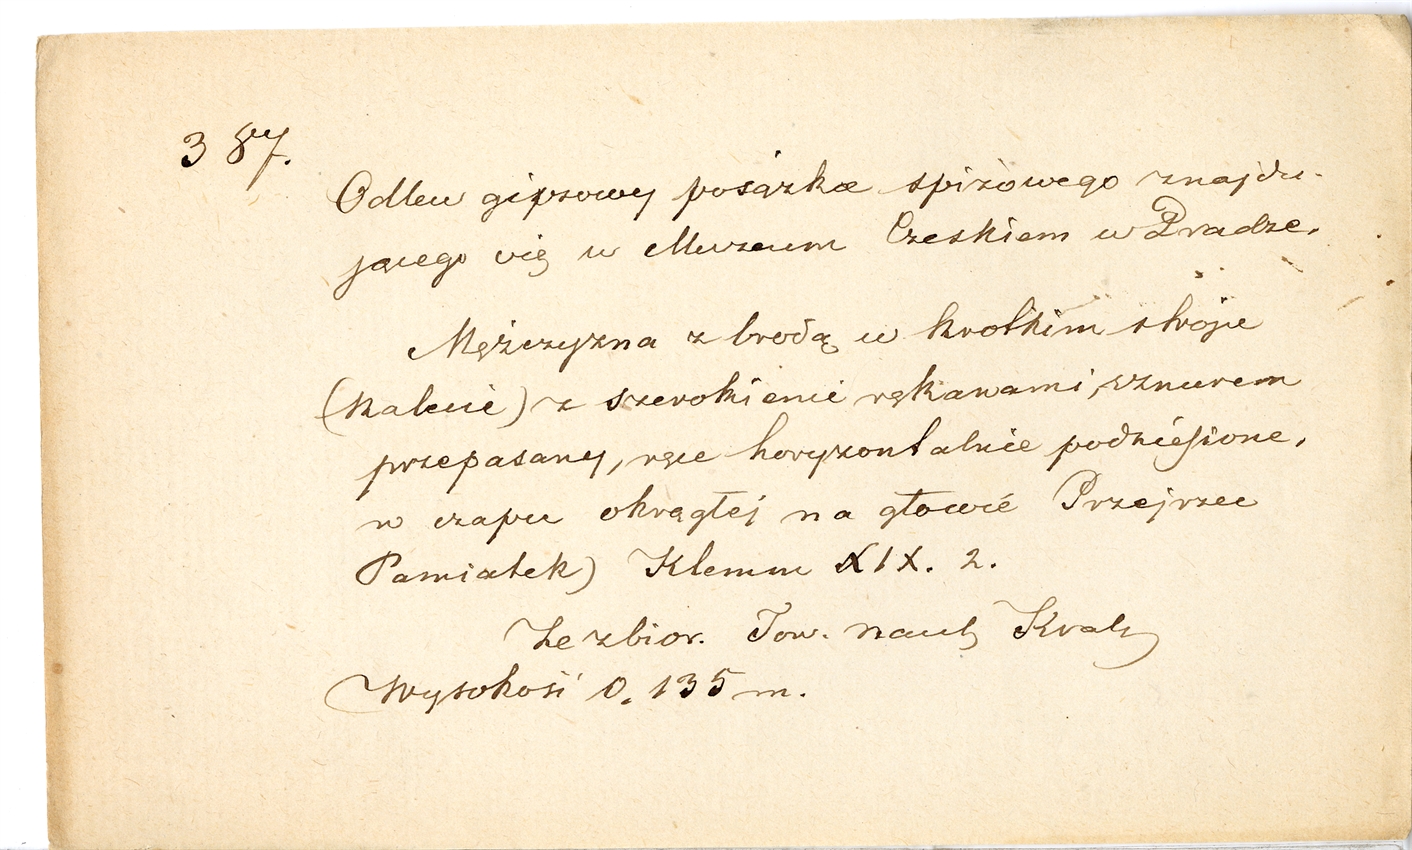 387.
Odlew gipsowy posążka spiżowego znajdu-
jącego się w Muzeum Czeskiem w Pradze.
Mężczyzna z brodą w krótkim stroju
(kalecie) z szerokiemi rękawami, sznurem
przepasany, ręce horyzontalnie podniesione,
w czapce okrągłéj na głowie Przejrzeć
Pamiatek) Klemm XIX. 2.
Ze zbior. Tow. nauk Krak
Wysokość 0,135 m.